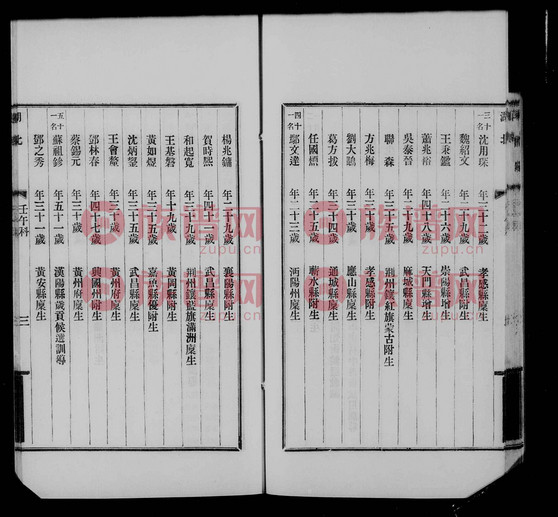 三十一名 沈用琛 年三十一歲 孝感縣廩生
魏紹文 年二十九歲 武昌縣附生
王秉鑑 年二十六歲 崇陽縣增生
蕭兆裕 年四十八歲 天門縣增生
吳泰晉 年二十九歲 麻城縣廩生
聯森 荆州鑲紅旗蒙古附生
方兆梅 年三十歲 孝感縣附生
劉大鵰 應山縣廩生
葛方拔 年二十四歲 通城縣廩生
任國 蘄水縣附生
四十一名 鄢文達 年二十三歲 沔陽州廩生
楊兆鏞 年二十九歲 襄陽縣附生
賀時熙 武昌縣附生
和起寬 年三十九歲 荆州鑲藍旗滿洲廩生
王基磐 年十九歲 黃岡縣附生
黃如煜 年二十五歲 嘉魚縣優附生
沈炳鋆 年三十五歲 武昌縣廩生
王會釐 黃州府廩生
鄧林春 年四十七歲 興國州附生
蔡錫元 年三十歲 黃州府廩生
五十一名 蘇祖鉁 年五十一歲 漢陽縣歲貢候選訓導
鄧之秀 年三十一歲 黃安縣廩生
壬午科
三
族谱网
zupu.cn